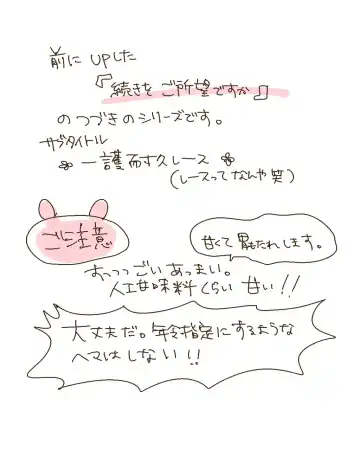 前に UPした
『続きを ご所望ですか』
のつづきのシリーズです。
サブタイトル
一護耐久レース
(レースってなんや笑)
ご注意
甘くて胃もたれします。
おっっっごいあっまい。
人工甘味料くらい 甘い!!
大丈夫だ。年令指定にするような
ヘマはしない!!